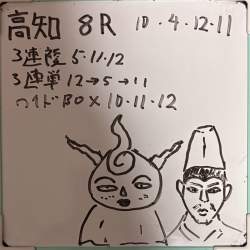 高知 8R 10.4.12.11
3連複 5.11.12
3連単 12→5→11
ワイドBOX 10.11.12